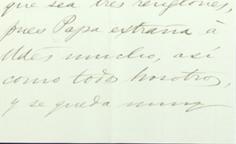 que sea tres renglones,
pues Papa extraña à
Udtes mucho, así
como todo nosotros,
y se queda muy